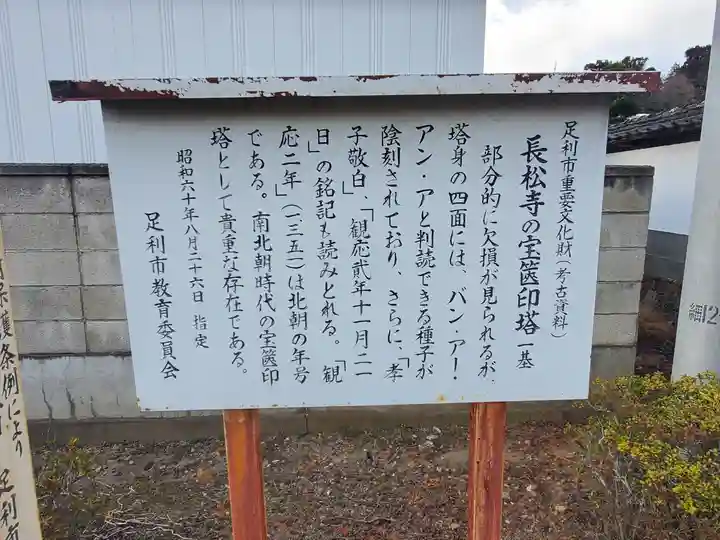 足利市重要文化財(考古資料)
長松寺の宝篋印塔 一基
部分的に欠損が見られるが、
塔身の四面には、バン・アー・
アン・アと判読できる種子が
陰刻されており、さらに、「孝
子敬白」、「観応貳年十一月二一
日」の銘記も読みとれる。「観
応二年」(一三五一)は北朝の年号
である。南北朝時代の宝篋印
塔として貴重な存在である。
昭和六十年八月二十六日 指定
足利市教育委員会
保護条例により
足利市
細12